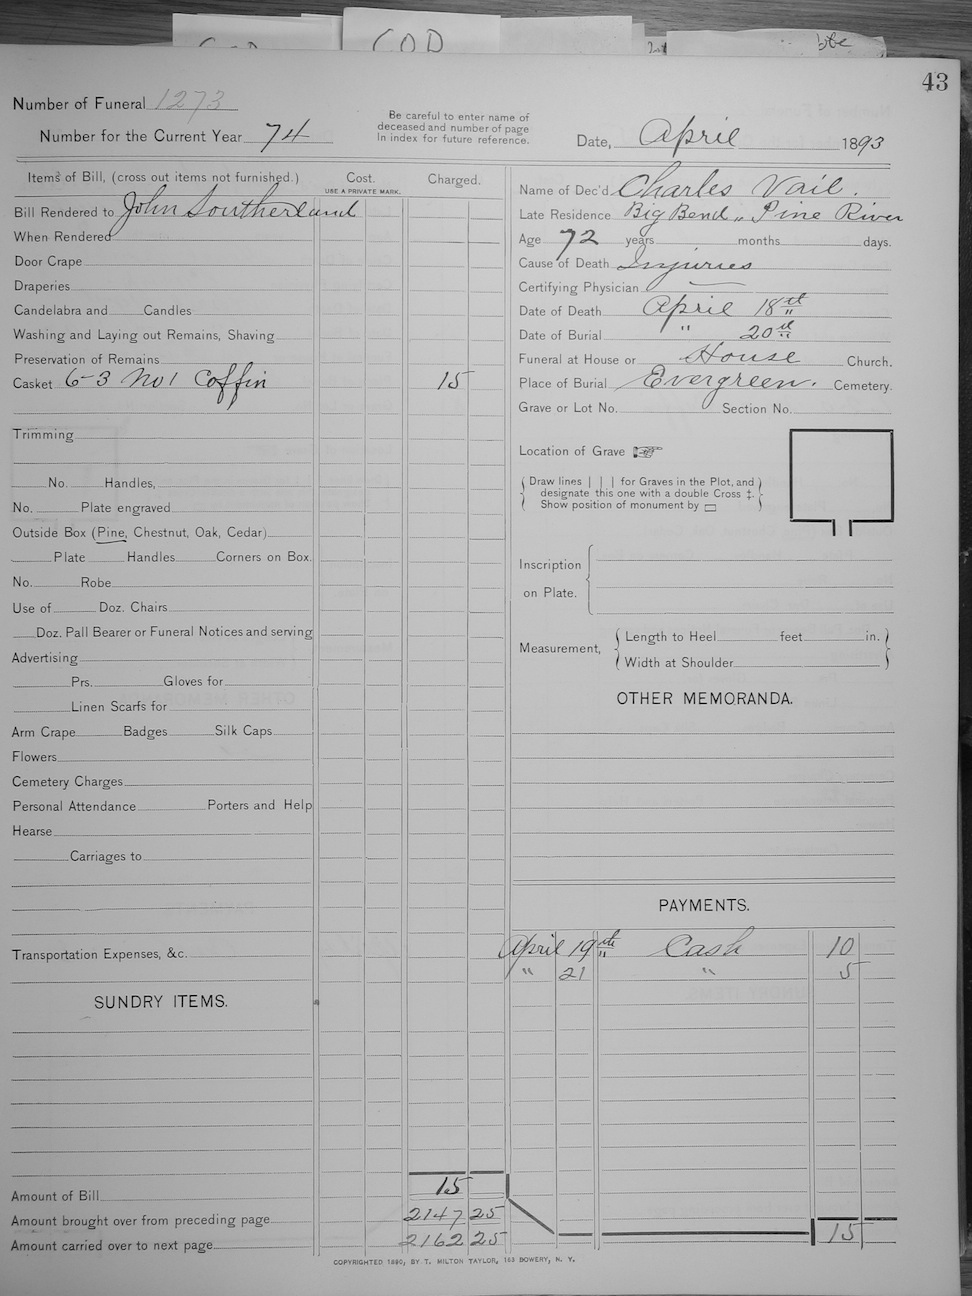 COD
COD
43
Number of Funeral 1273
Number for the Current Year 74
Be careful to enter name of
deceased and number of page
In index for future reference.
Date, April 1893
Items of Bill, (cross out items not furnished.)
Cost.
USE A PRIVATE MARK.
Charged.
Bill Rendered to John Southerland
When Rendered
Door Crape
Draperies
Candelabra and Candles
Washing and Laying out Remains, Shaving
Preservation of Remains
Casket 6-3 No 1 Coffin 15
Trimming
No. Handles,
No. Plate engraved
Outside Box (Pine, Chestnut, Oak, Cedar)
Plate Handles Corners on Box.
No. Robe
Use of Doz. Chairs
Doz. Pall Bearer or Funeral Notices and serving
Advertising
Prs. Gloves for
Linen Scarfs for
Arm Crape Badges Silk Caps
Flowers
Cemetery Charges
Personal Attendance Porters and Help
Hearse
Carriages to
Transportation Expenses, &c.
SUNDRY ITEMS.
Amount of Bill 15
Amount brought over from preceding page 2147 25
Amount carried over to next page 2162 25
Name of Dec'd Charles Vail.
Late Residence Big Bend „ Pine River
Age 72 years months days.
Cause of Death Injuries
Certifying Physician —
Date of Death April 18th
Date of Burial " 20th
Funeral at House or House Church,
Place of Burial Evergreen. Cemetery.
Grave or Lot No. Section No.
Location of Grave ☞
(Draw lines | | | for Graves in the Plot, and
designate this one with a double Cross ‡.
Show position of monument by ▭)
Inscription
on Plate.
Measurement, Length to Heel feet in.
Width at Shoulder
OTHER MEMORANDA.
PAYMENTS.
April 19th Cash 10
" 21 " 5
15
COPYRIGHTED 1880, BY T. MILTON TAYLOR, 153 BOWERY, N. Y.